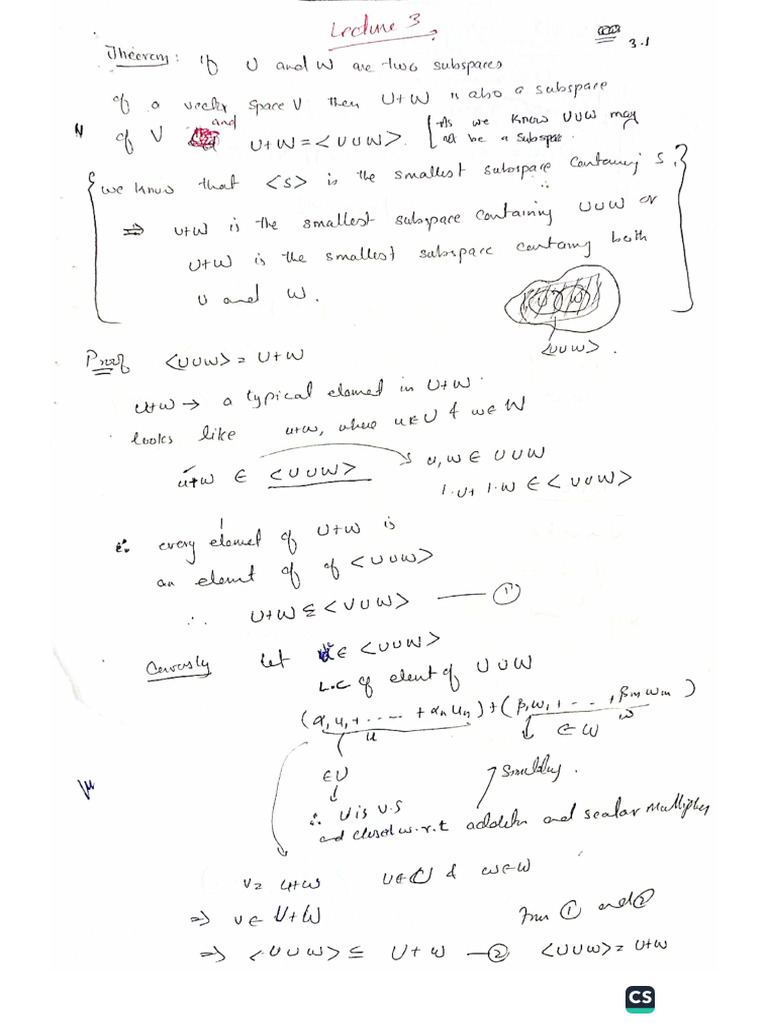 Lecture 3
3.1
Theorem: If U and W are two subspaces
of a vector space V then U+W is also a subspace
of V and U+W = <U∪W>. [As we know U∪W may
not be a subspace.
{we know that <S> is the smallest subspace containing S.}
⇒ U+W is the smallest subspace containing U∪W or
U+W is the smallest subspace containing both
U and W.
U W
<U∪W>.
Proof <U∪W> = U+W
u+w → a typical element in U+W.
looks like u+w, where u∈U & w∈W
u+w ∈ <U∪W> u, w ∈ U∪W
1·u+1·w ∈ <U∪W>
∴ every element of U+W is
an elemt of of <U∪W>
∴ U+W ⊆ <U∪W> — ①
Let ∈ <U∪W>
L.C of elemt of U∪W
(α₁u₁+.....+αₙuₙ)+(β₁w₁+...+βₘwₘ)
u w
∈U ∈W
∴ U is V.S Similarly.
and closed w.r.t addition and scalar multiplication
v = u+w u∈U & w∈W
⇒ v∈ U+W From ① and ②
⇒ <U∪W> ⊆ U+W —② <U∪W> = U+W
CS